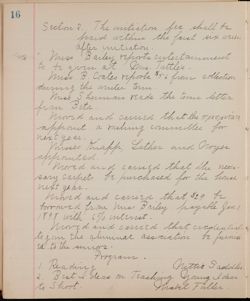 16
Section 2. The initiation fee shall be
paid within the first six weeks
after initiation.
Miss Bailey reports entertainment
to be given at Mrs.
Miss B. Coles reports from collection
during the winter term.
Miss Sherman reads the term letter
from Beta
Moved and carried that the
appoint a rushing committee for
next year.
Misses Knapp, Luther and Noyes
appointed.
Moved and carried that the
carpet be purchased for the house
next year.
Moved and carried that $29 be
borrowed from Miss Bailey payable June
1898 with 6% interest.
Moved and carried that
from the alumnae association be
to the seniors.
Program.
1. Reading
2. Best Ideas on Teaching Young Ideas
to Shoot. Mabel Fuller